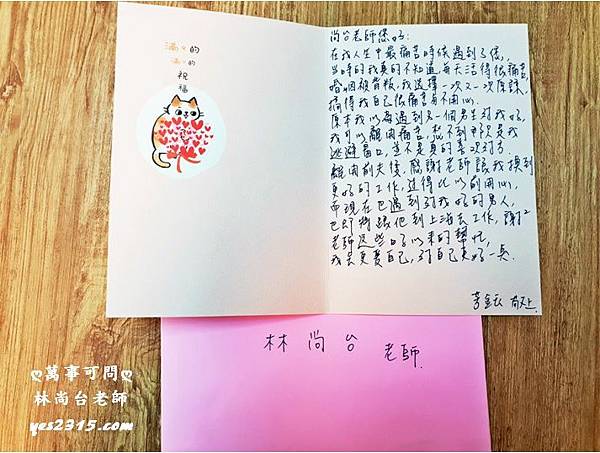 滿滿的
滿滿的
祝
福
尚台老師您好:
在我人生中最痛苦時候遇到了您,
當時的我真的不知道每天活得很痛苦,
婚姻被背叛,我選擇一次又一次原諒,
搞得我自己很痛苦每不開心.
原本我以為遇到另一個男生對我好,
我可以離開痛苦,想不到申設是我
逃避窗口,並不是真的喜歡對方.
離開前夫後,感謝老師讓我換到
更好的工作,過得比以前開心,
而現在已遇到對我好的男人,
也即將跟他到上海去工作,謝謝
老師這些日子以來的幫忙,
我要更愛自己,對自己更好一點.
敬上
林尚台 老師.
ღ萬事可問ღ
林尚台老師
yes2315.com